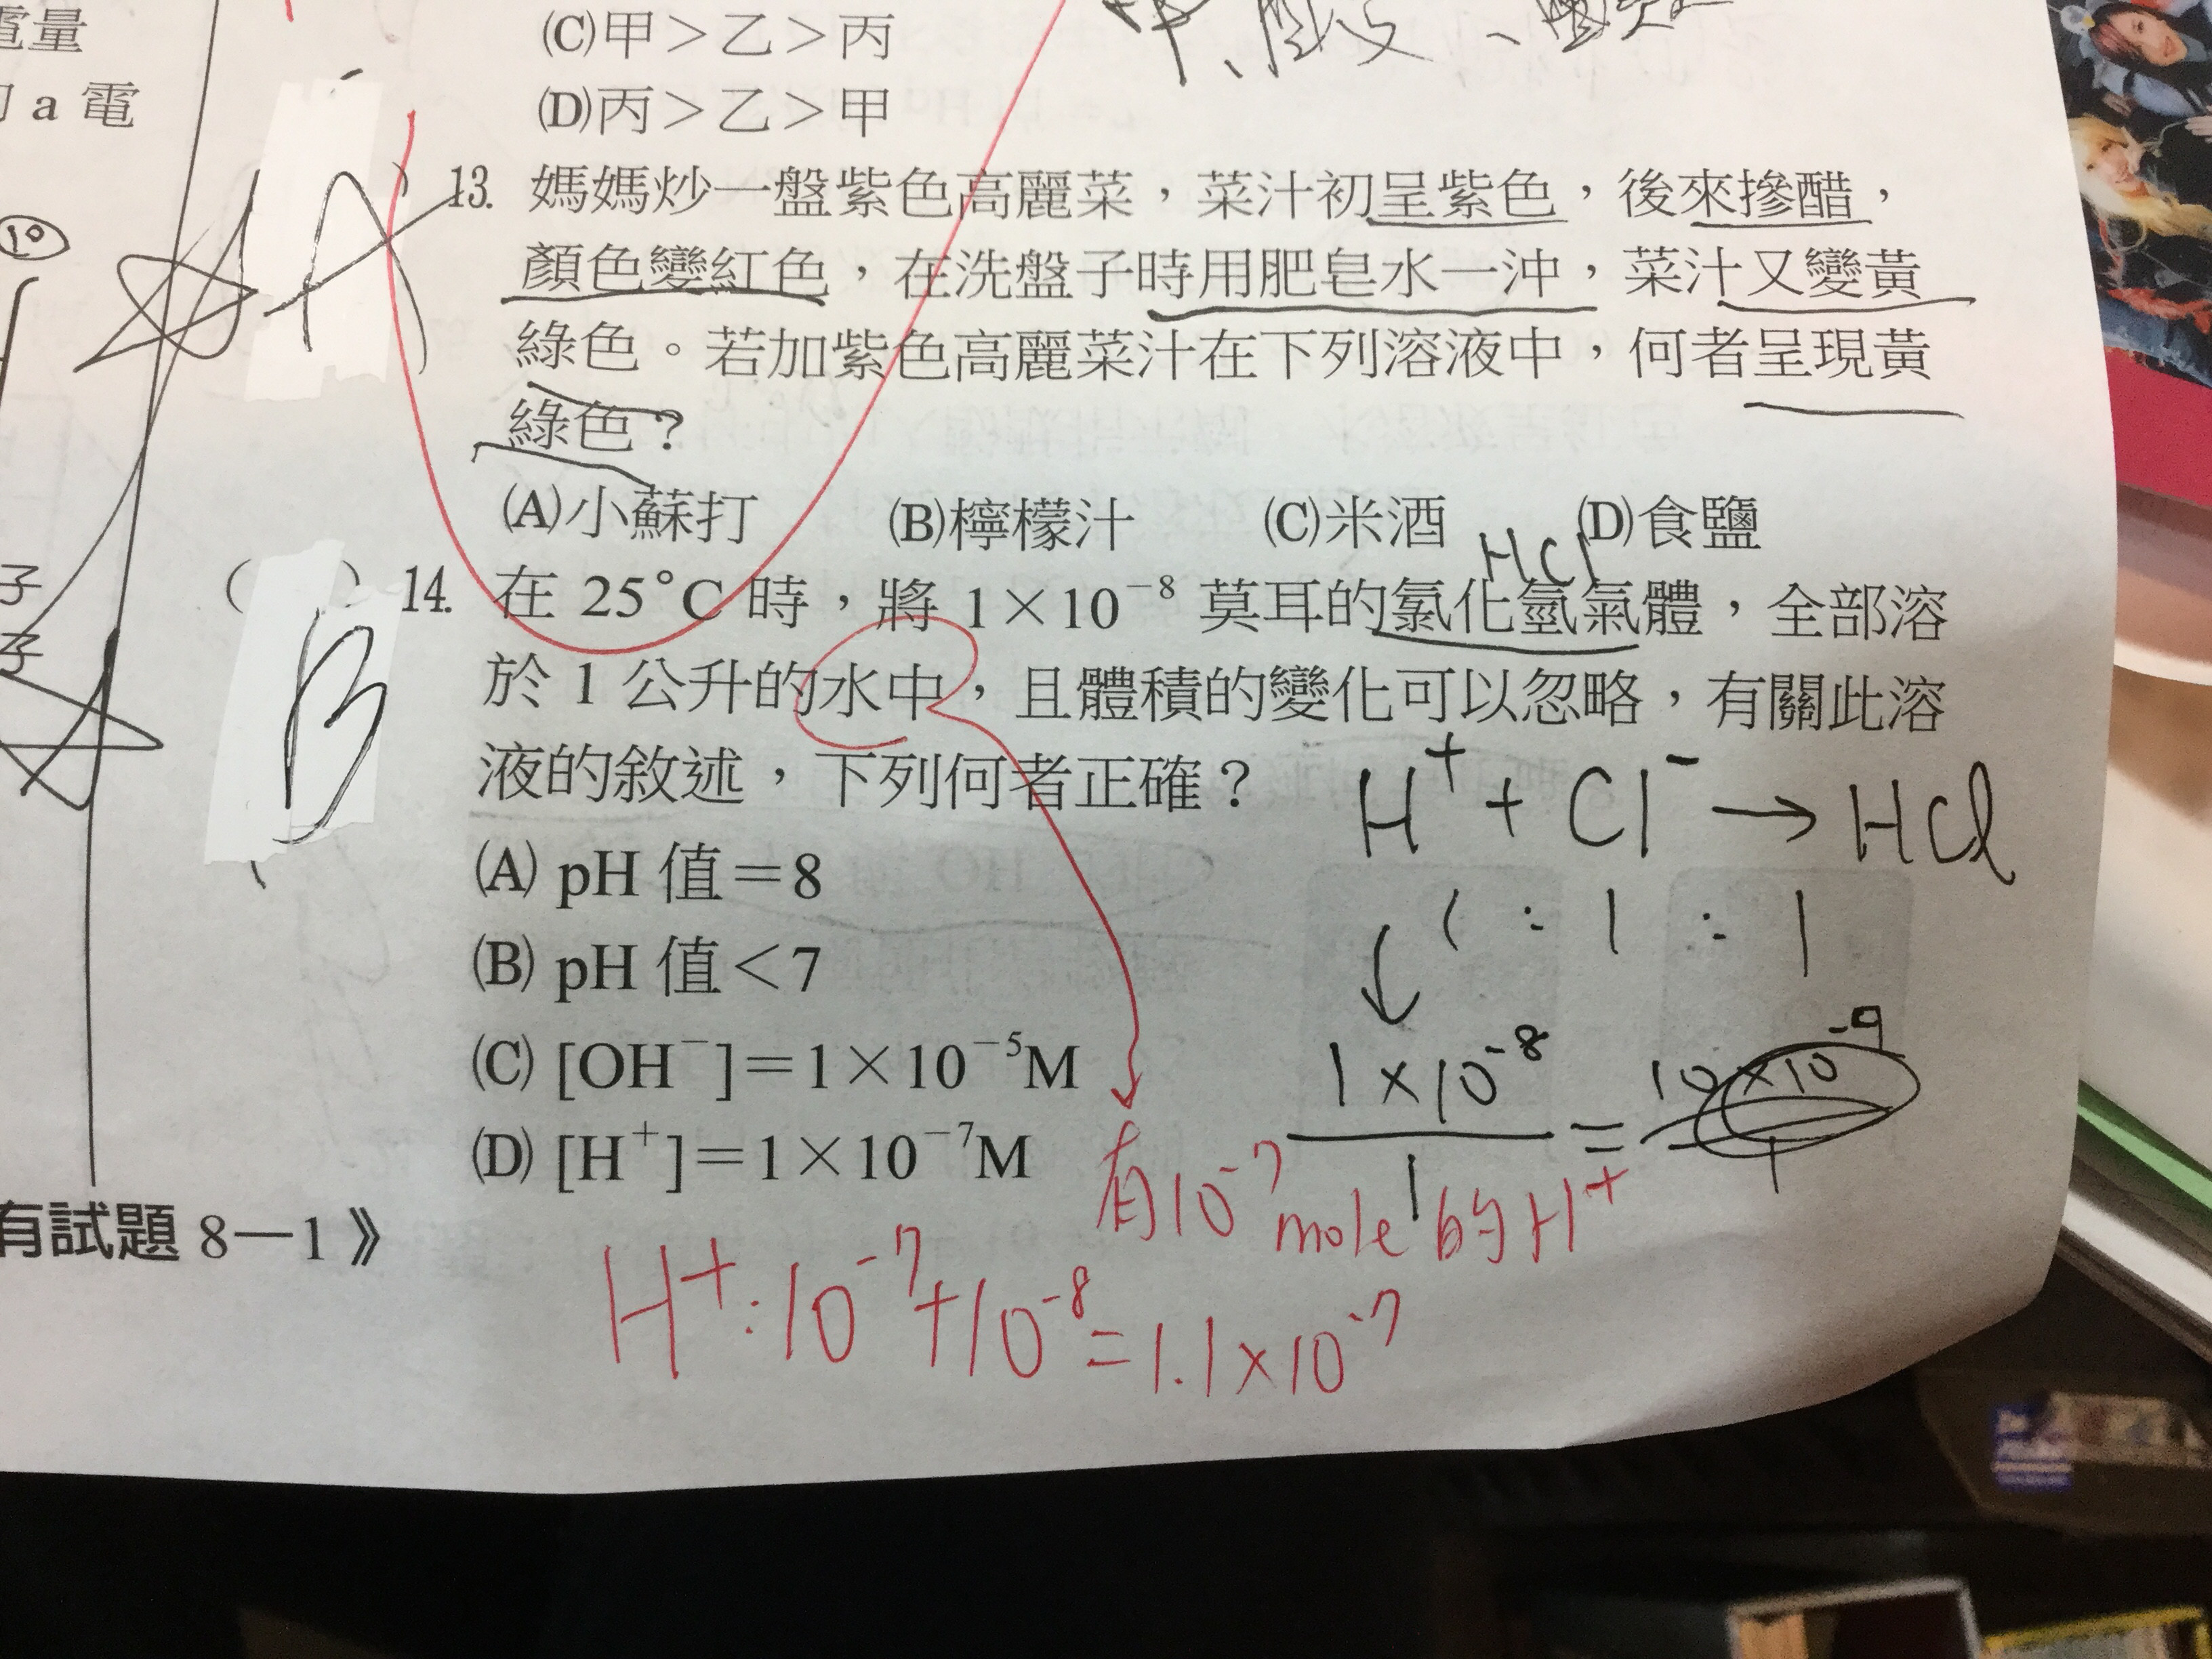 電量
a 電
(C)甲＞乙＞丙
(D)丙＞乙＞甲
10
A
13. 媽媽炒一盤紫色高麗菜，菜汁初呈紫色，後來摻醋，
顏色變紅色，在洗盤子時用肥皂水一沖，菜汁又變黃
綠色。若加紫色高麗菜汁在下列溶液中，何者呈現黃
綠色？
(A)小蘇打 (B)檸檬汁 (C)米酒 (D)食鹽
HCl
子
子
( B ) 14. 在 25°C 時，將 1×10⁻⁸ 莫耳的氯化氫氣體，全部溶
於 1 公升的水中，且體積的變化可以忽略，有關此溶
液的敘述，下列何者正確？
H⁺ + Cl⁻ → HCl
1 : 1 : 1
(A) pH 值＝8
(B) pH 值＜7
(C) [OH⁻]＝1×10⁻⁵M
(D) [H⁺]＝1×10⁻⁷M
1×10⁻⁸
1
= 10×10⁻⁹
1
有10⁻⁷mole的H⁺
有試題 8－1》
H⁺:10⁻⁷+10⁻⁸=1.1×10⁻⁷